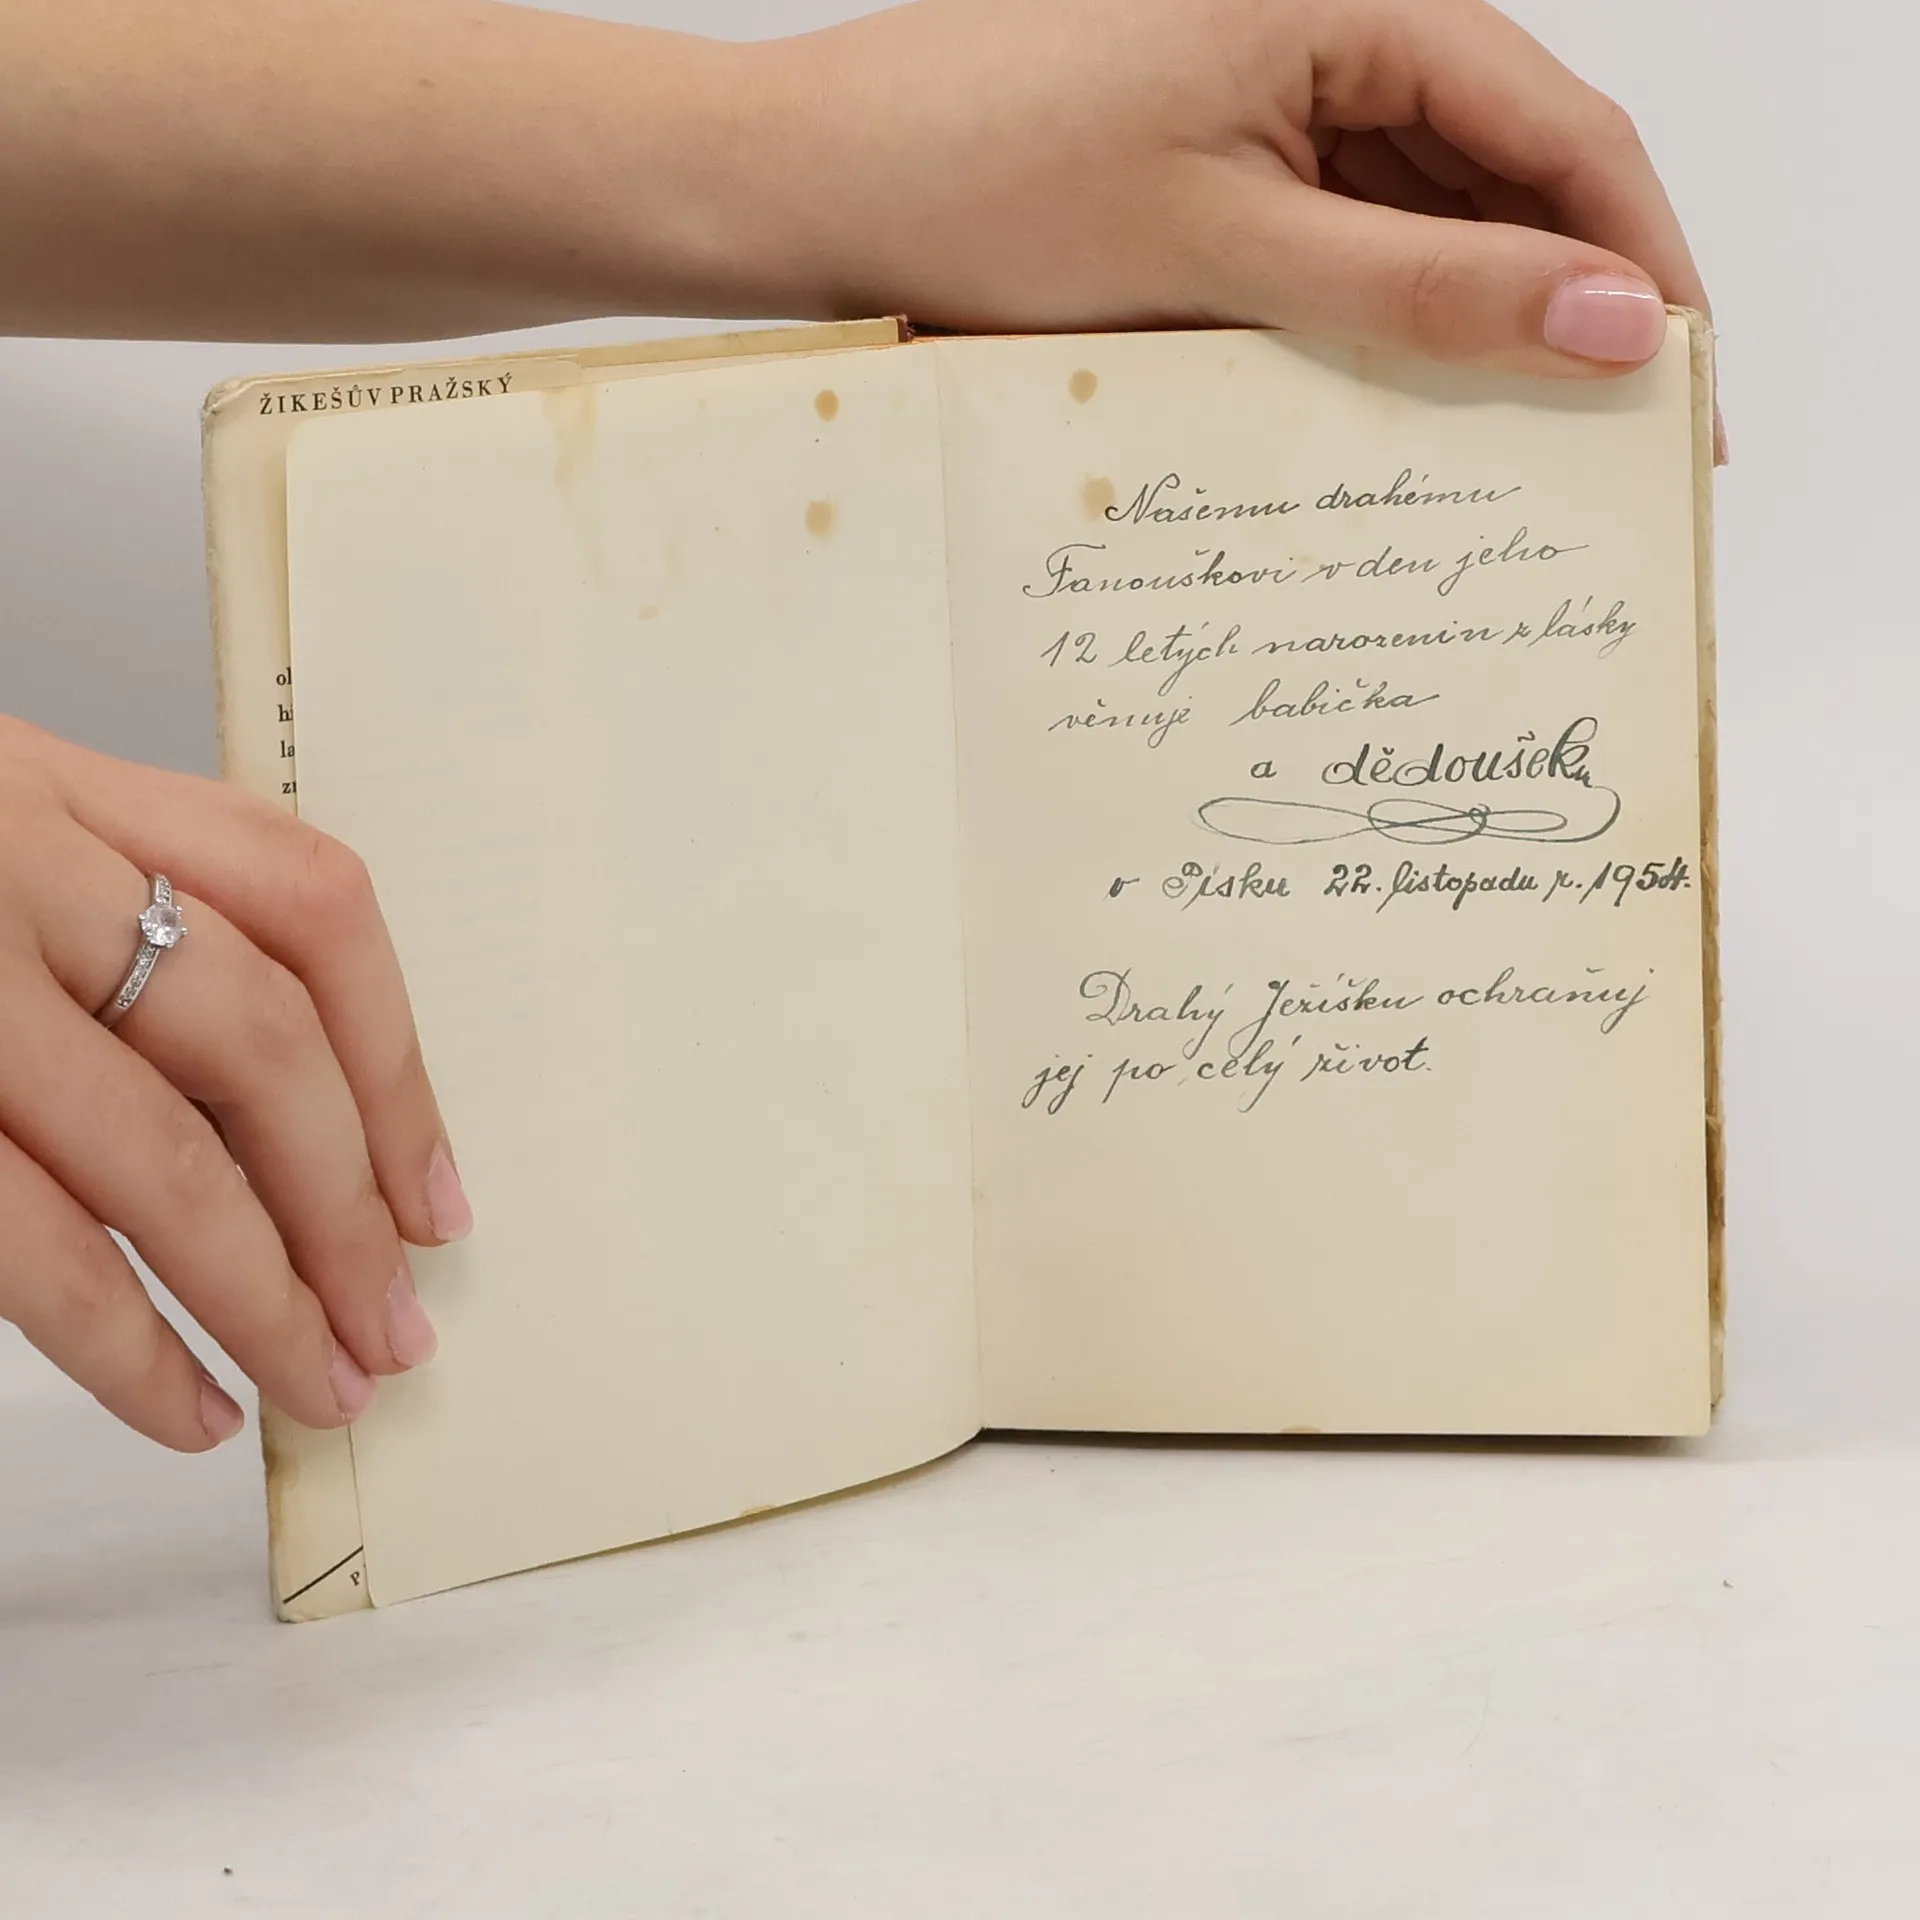 ŽIKEŠŮV PRAŽSKÝ
ol
hi
la
zn
P
Našemu drahému
Fanouškovi v den jeho
12 letých narozenin z lásky
věnuje babička
a dědoušek
v Písku 22. listopadu r. 1954.
Drahý Ježíšku ochraňuj
jej po celý život.